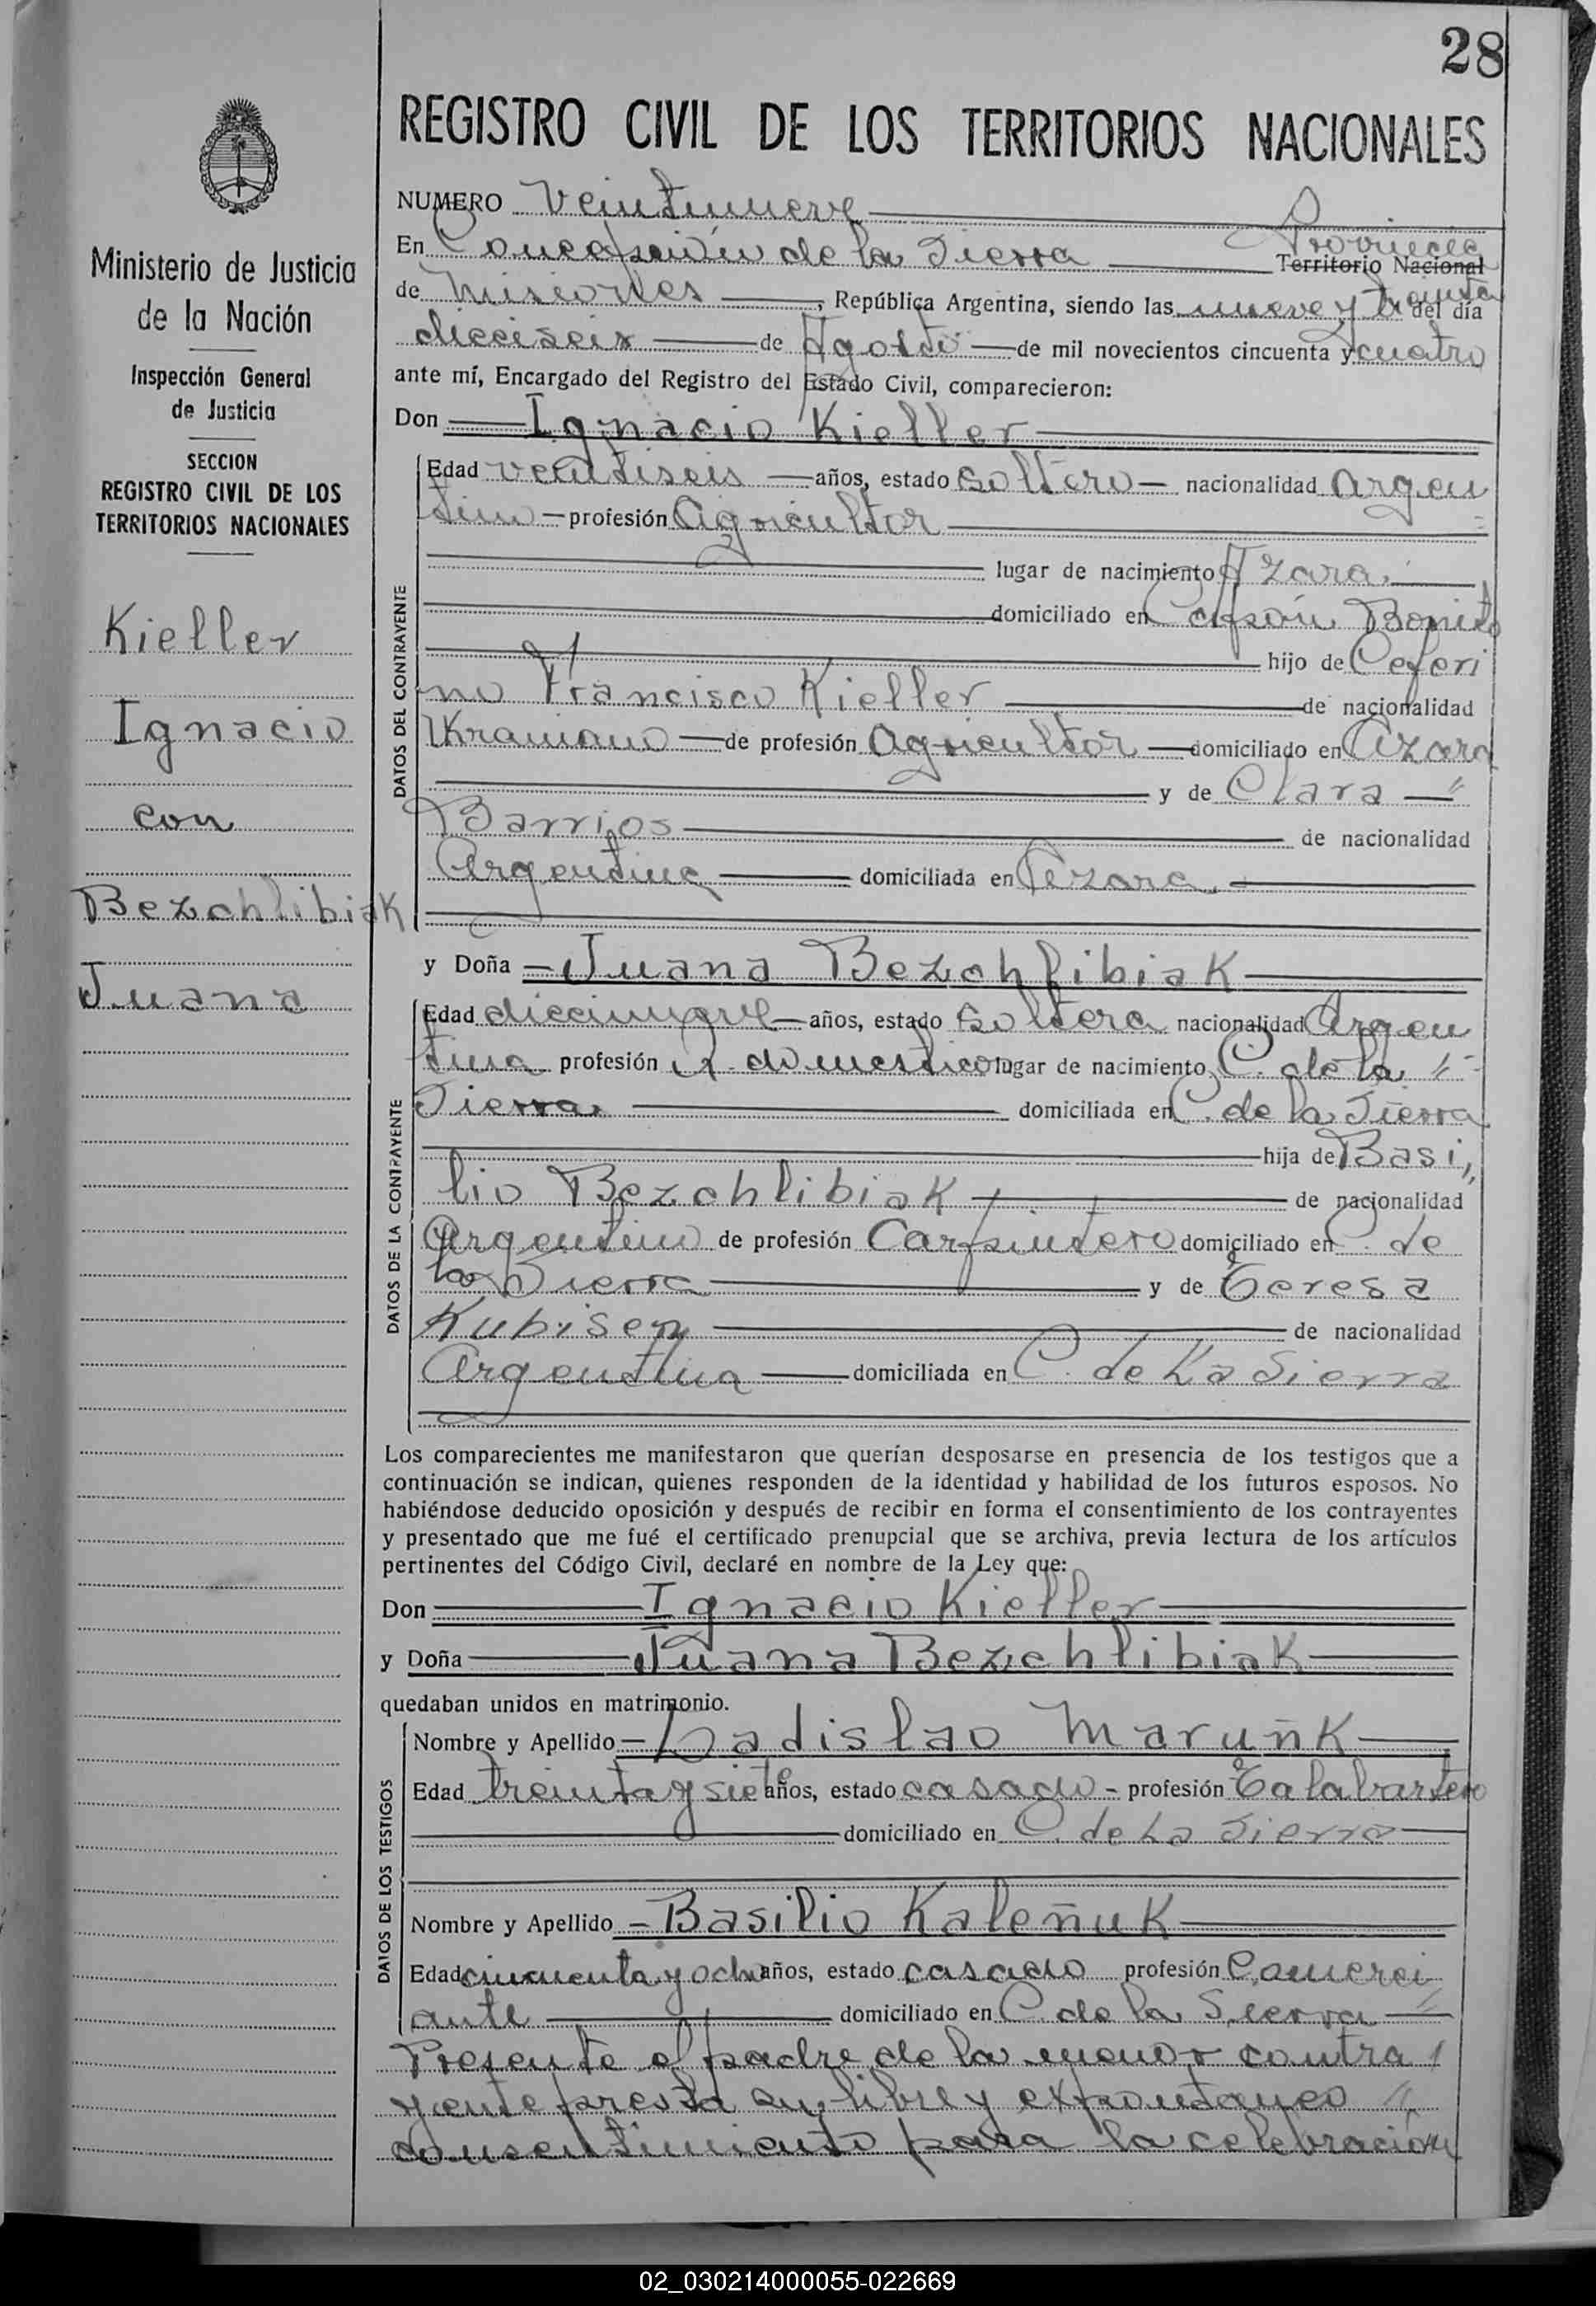 28
REGISTRO CIVIL DE LOS TERRITORIOS NACIONALES
Ministerio de Justicia
de la Nación
Inspección General
de Justicia
SECCION
REGISTRO CIVIL DE LOS
TERRITORIOS NACIONALES
Kieller
Ignacio
con
Bezchlibiak
Juana
NUMERO veintinueve
Provincia
En Concepción de la Sierra Territorio Nacional
de Misiones, República Argentina, siendo las nueve y treinta del día
dieciseis de Agosto de mil novecientos cincuenta y cuatro
ante mí, Encargado del Registro del Estado Civil, comparecieron:
Don Ignacio Kieller
DATOS DEL CONTRAYENTE
Edad veintiseis años, estado soltero nacionalidad Argen
tino profesión Agricultor
lugar de nacimiento Azara.
domiciliado en Bonito
hijo de Ceferi
no Francisco Kieller de nacionalidad
Ukraniano de profesión Agricultor domiciliado en Azara
y de Clara
Barrios de nacionalidad
Argentina domiciliada en Azara.
y Doña Juana Bezchlibiak
DATOS DE LA CONTRAYENTE
Edad diecinueve años, estado soltera nacionalidad Argen
tina profesión Q. domestico lugar de nacimiento C. de la
Sierra. domiciliada en C. de la Sierra
hija de Basi
lio Bezchlibiak de nacionalidad
Argentino de profesión Carpintero domiciliado en C. de
la Sierra y de Teresa
Kubisen de nacionalidad
Argentina domiciliada en C. de La Sierra
Los comparecientes me manifestaron que querían desposarse en presencia de los testigos que a
continuación se indican, quienes responden de la identidad y habilidad de los futuros esposos. No
habiéndose deducido oposición y después de recibir en forma el consentimiento de los contrayentes
y presentado que me fué el certificado prenupcial que se archiva, previa lectura de los artículos
pertinentes del Código Civil, declaré en nombre de la Ley que:
Don Ignacio Kieller
y Doña Juana Bezchlibiak
quedaban unidos en matrimonio.
DATOS DE LOS TESTIGOS
Nombre y Apellido Ladislao Maruñk
Edad treinta y siete años, estado casado - profesión Talabartero
domiciliado en C. de La Sierra
Nombre y Apellido Basilio Kaleñuk
Edad cincuenta y ocho años, estado casado profesión Comerci
ante domiciliado en C. de la Sierra
Presente el padre de la menor contra
yente presta su libre y expontaneo
consentimiento para la celebración
02_030214000055-022669